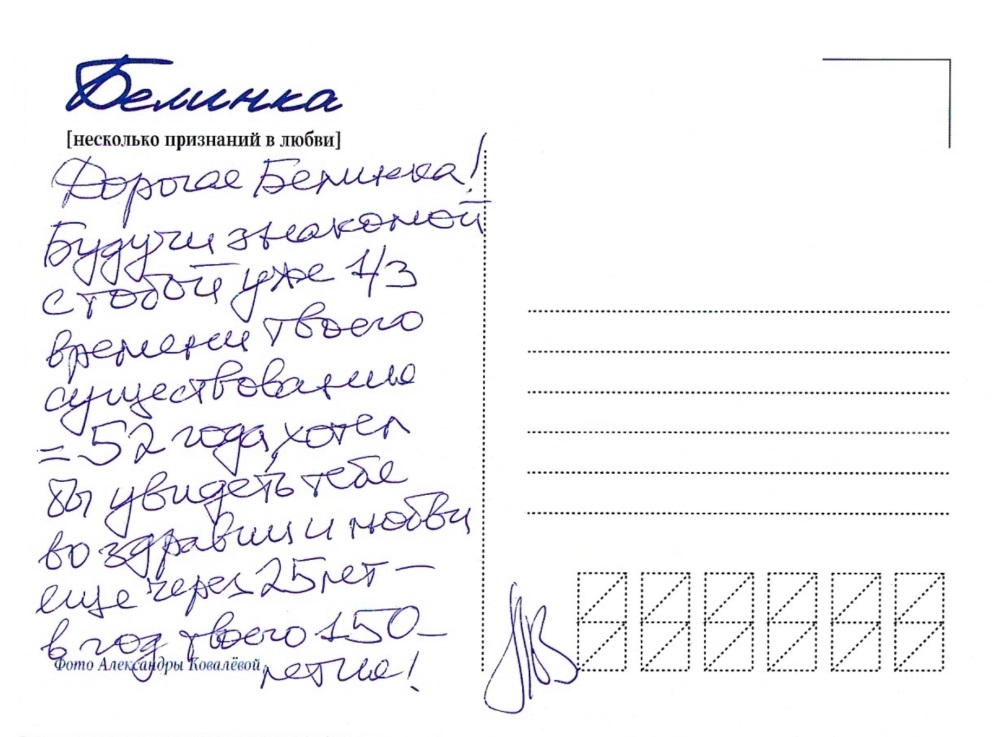 Белинка
[несколько признаний в любви]
Дорогая Белинка!
Будучи знакомой
с тобой уже 1/3
времени твоего
существования
= 52 года, хотел
бы увидеть тебе
во здравии и любви
еще через 25 лет –
в год твоего 150–
летия!
Фото Александры Ковалёвой